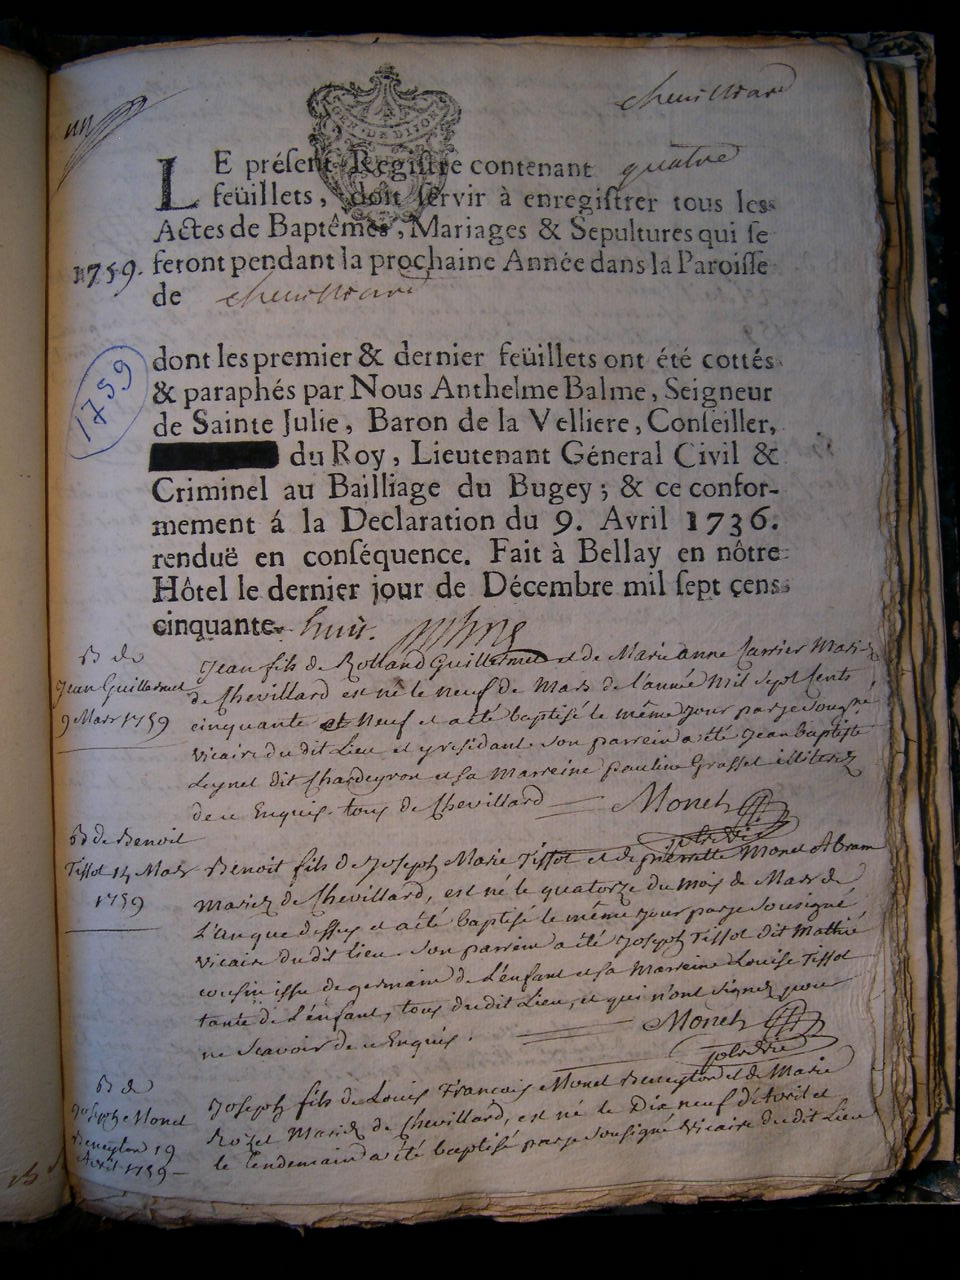 un
chevillard
GEN. DE DIJON
LE présent Registre contenant quatre
feüillets, doit servir à enregistrer tous les
Actes de Baptêmes, Mariages & Sepultures qui se
feront pendant la prochaine Année dans la Paroisse
1759.
de chevillard
1759
dont les premier & dernier feüillets ont été cottés
& paraphés par Nous Anthelme Balme, Seigneur
de Sainte Julie, Baron de la Velliere, Conseiller,
du Roy, Lieutenant Géneral Civil &
Criminel au Bailliage du Bugey; & ce confor-
mement á la Declaration du 9. Avril 1736.
renduë en conséquence. Fait à Bellay en nôtre
Hôtel le dernier jour de Décembre mil sept çens
cinquante huit.
B de
Jean Guillermet
9 Mars 1759
Jean fils de Rolland Guillermet et de Marie anne Carrier Mariez
de Chevillard est né le neuf de Mars de l'année Mil Sept Cents
cinquante et Neuf et a été baptisé le même jour par je Sousigné
vicaire du dit Lieu et y residant. Son parrein a été Jean baptiste
Leynet dit Chardeyron et sa Marreine pauline Grasset illiterez
de ce Enquis. tous de Chevillard Monet
B de Benoit
Tissot 14 Mars
1759
Benoit fils de Joseph Marie Tissot et de pierrette Monet Abram
Mariez de Chevillard, est né le quatorze du mois de Mars de
L'an que dessus et a été baptisé le même jour par je Sousigné
vicaire du dit lieu. Son parrein a été Joseph Tissot dit Mathié
cousin issu de germain de L'enfant et sa Marreine Louise Tissot
tante de L'enfant, tous du dit Lieu, et qui n'ont signez pour
ne Scavoir de ce Enquis. Monet
B de
Joseph Monet
Beneyton 19
Avril 1759
Joseph fils de Louis François Monet Beneyton et de Marie
Rozet Mariez de Chevillard, est né le Dix neuf d'Avril et
le Lendemain a été baptisé par je Sousigné Vicaire du dit Lieu